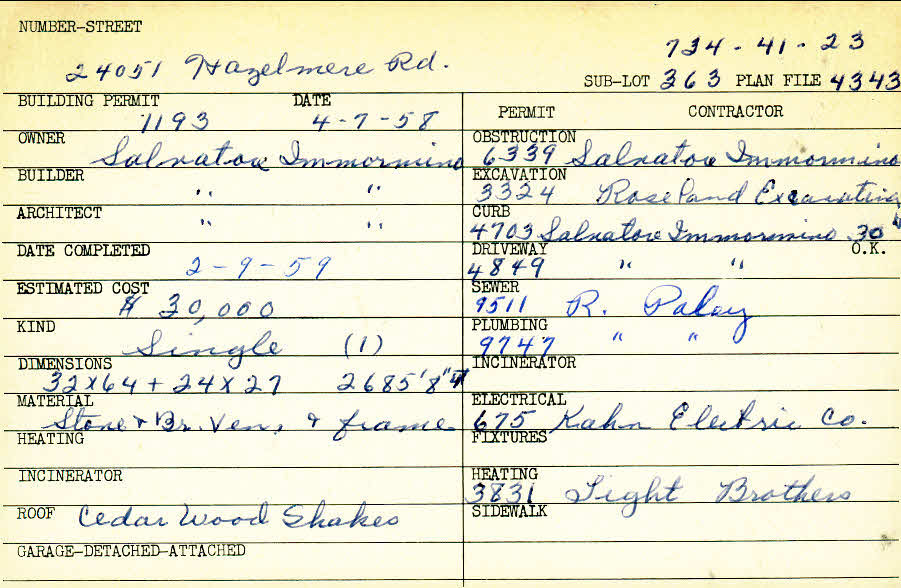 NUMBER-STREET
734-41-23
24051 Hazelmere Rd.
SUB-LOT 363 PLAN FILE 4343
BUILDING PERMIT DATE
1193 4-7-58
OWNER
Salvatore Immormino
BUILDER
" "
ARCHITECT
" "
DATE COMPLETED
2-9-59
ESTIMATED COST
$ 30,000
KIND
Single (1)
DIMENSIONS
32x64 + 24x27 2685'8"
MATERIAL
Stone & Br. Ven, & frame
HEATING
INCINERATOR
ROOF Cedar Wood Shakes
GARAGE-DETACHED-ATTACHED
PERMIT CONTRACTOR
OBSTRUCTION
6339 Salvatore Immormino
EXCAVATION
3324 Roseland Excavating
CURB
4703 Salvatore Immormino 30
O.K.
DRIVEWAY
4849 " "
SEWER
9511 R. Palay
PLUMBING
9747 " "
INCINERATOR
ELECTRICAL
675 Kahn Electric Co.
FIXTURES
HEATING
3831 Tight Brothers
SIDEWALK